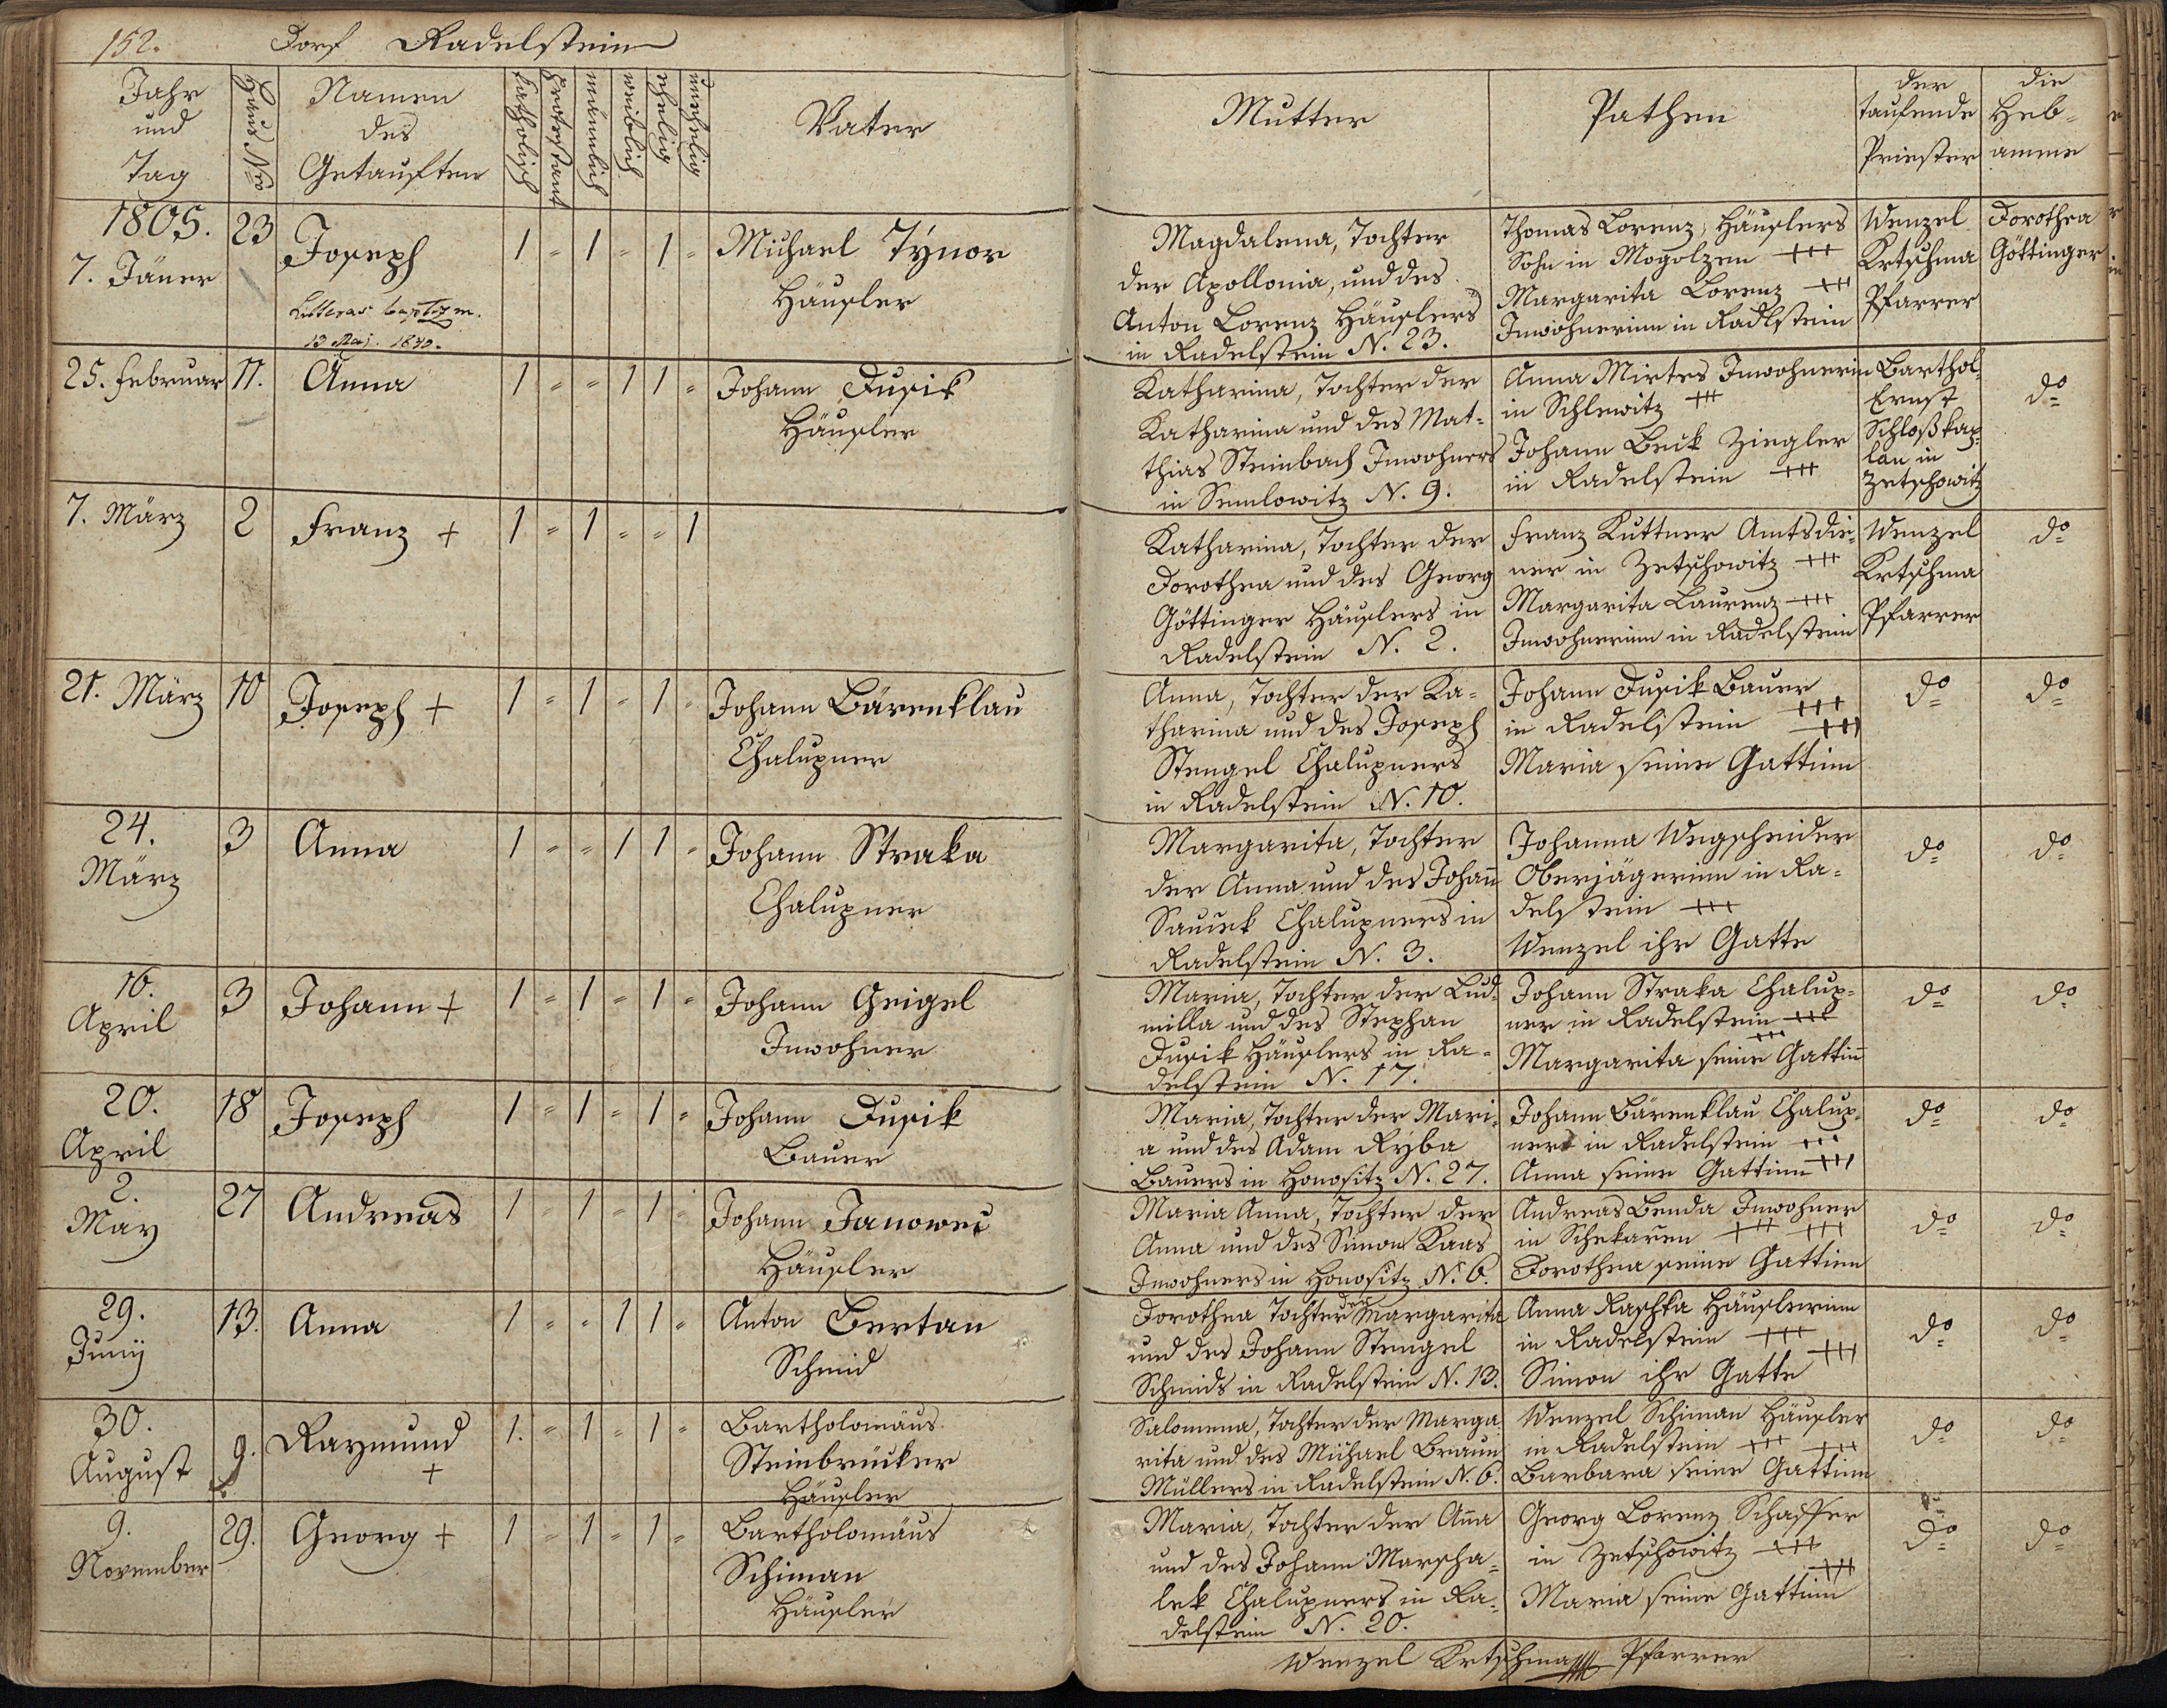 152. Dorf Radelstein
Jahr und Tag
Haus Nro
Namen des Getauften
katholisch
protestant
männlich
weiblich
ehelig
unehelig
Vater
Mutter
Pathen
der taufende Priester
die Hebamme
1805.
7. Jäner
23
Joseph
Litteras baptism.
13 Maj. 1840.
1 = 1 = 1 =
Michael Tÿnor
Häusler
Magdalena, Tochter
der Apollonia, und des
Anton Lorenz Häuslers
in Radelstein N. 23.
Thomas Lorenz, Häuslers
Sohn in Mogolzen +++
Margarita Lorenz +++
Inwohnerinn in Radlstein
Wenzel
Krtschma
Pfarrer
Dorothea
Göttinger
25. Februar
17.
Anna
1 = = 1 1 =
Johann Dusik
Häusler
Katharina, Tochter der
Katharina und des Mat-
thias Steinbach Inwohners
in Semlowitz N. 9.
Anna Mirtes Inwohnerin
in Schlewitz +++
Johann Beck Ziegler
in Radelstein +++
Barthol.
Ernst
Schloßkap-
lan in
Zetschowitz
do
7. März
2
Franz +
1 = 1 = = 1
Katharina, Tochter der
Dorothea und des Georg
Göttinger Häuslers in
Radelstein N. 2.
Franz Kuttner Amtsdie-
ner in Zetschowitz +++
Margarita Laurenz +++
Inwohnerinn in Radelstein
Wenzel
Krtschma
Pfarrer
do
21. März
10
Joseph +
1 = 1 = 1 =
Johann Bärenklau
Chalupner
Anna, Tochter der Ka-
tharina und des Joseph
Stengel Chalupners
in Radelstein N. 10.
Johann Dusik Bauer
in Radelstein +++
+++
Maria seine Gattinn
do
do
24.
März
3
Anna
1 = = 1 1 =
Johann Straka
Chalupner
Margarita, Tochter
der Anna und des Johañ
Sauček Chalupners in
Radelstein N. 3.
Johanna Wegscheider
Oberjägerinn in Ra-
delstein +++
Wenzel ihr Gatte
do
do
16.
April
3
Johann +
1 = 1 = 1 =
Johann Geigel
Inwohner
Maria, Tochter der Lud-
milla und des Stephan
Dusik Häuslers in Ra-
delstein N. 17.
Johann Straka Chalup-
ner in Radelstein +++
+++
Margarita seine Gattiñ
do
do
20.
April
18
Joseph
1 = 1 = 1 =
Johann Dusik
Bauer
Maria, Tochter der Mari-
a und des Adam Ryba
Bauers in Honositz N. 27.
Johann Bärenklau Chalup-
ner in Radelstein +++
Anna seine Gattinn +++
do
do
2.
May
27
Andreas
1 = 1 = 1 =
Johann Janowec
Häusler
Maria Anna, Tochter der
Anna und des Simon Kaas
Inwohners in Honositz N. 6.
Andreas Benda Inwohner
in Schekaren +++ +++
Dorothea seine Gattinn
do
do
29.
Junÿ
13.
Anna
1 = = 1 1 =
Anton Bertan
Schmid
Dorothea Tochter der Margarita
und des Johann Stengel
Schmids in Radelstein N. 13.
Anna Raschka Häuslerinn
in Radelstein +++
+++
Simon ihr Gatte
do
do
30.
August
9.
Raymund
+
1. = 1 = 1 =
Bartholomäus
Steinbrücker
Häusler
Salomena, Tochter der Marga
rita und des Michael Braun
Müllers in Radelstein N. 6.
Wenzel Schiman Häusler
in Radelstein +++ +++
Barbara seine Gattinn
do
do
9.
November
29.
Georg +
1 = 1 = 1 =
Bartholomäus
Schiman
Häusler
Maria, Tochter der Aña
und des Johann Marscha-
lek Chalupners in Ra-
delstein N. 20.
Georg Lorenz Schaffer
in Zetschowitz +++
+++
Maria seine Gattinn
do
do
Wenzel Krtschma Pfarrer